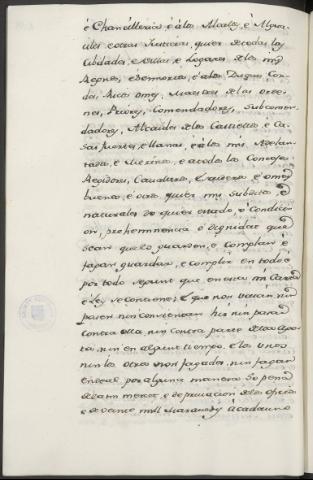 é Chancilleria é á los Alcaldes é Algua-
ciles é otras Justicias, quier de todas las
Cibdades, é villas é Logares de los mis
Regnos, é Sennorios, é á los Duques Con-
des, Ricos Omes, Maestres de las orde-
nes, Priores, Comendadores, Subcomen-
dadores, Alcaides de los Castiellos é Ca-
sas fuertes é llanas, é á los mis Adelan-
tados, é Merinos, é á todos los Concejos
Regidores, Cavalleros, Escuderos é omes
buenos, é otros quier mis subditos, é
naturales de quier estado, é Condici-
on, preheminencia é dignidat que
sean que lo guarden, é Complan é
fagan guardar, é complir en todo é
por todo segunt que en esta mi Carta
é Ley se contiene: E que non vaian nin
pasen nin consientan hir nin pasar
contra ella nin contra parte della ago-
ra, nin en algunt tiempo. E los unos
nin los otros non fagades, nin fagan
endeal por alguna manera so pena
de la mi merced, é de privacion de los oficios
é de veinte mill Maravedis á cada uno